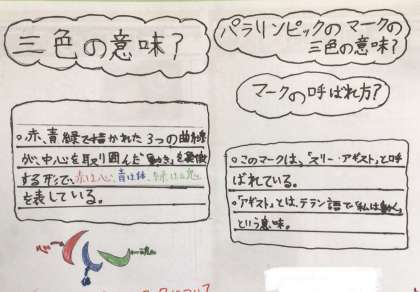 三色の意味?
・赤、青、緑で描かれた3つの曲線
が、中心を取り囲んだ「動き」を
する形で、赤は心、青は体、緑は魂
を表している。
心
体
魂
パラリンピックのマークの
三色の意味?
マークの呼ばれ方?
・このマークは、「スリー・アギスト」と呼
ばれている。
・「アギスト」とは、テラン語で「私は動く」
という意味。